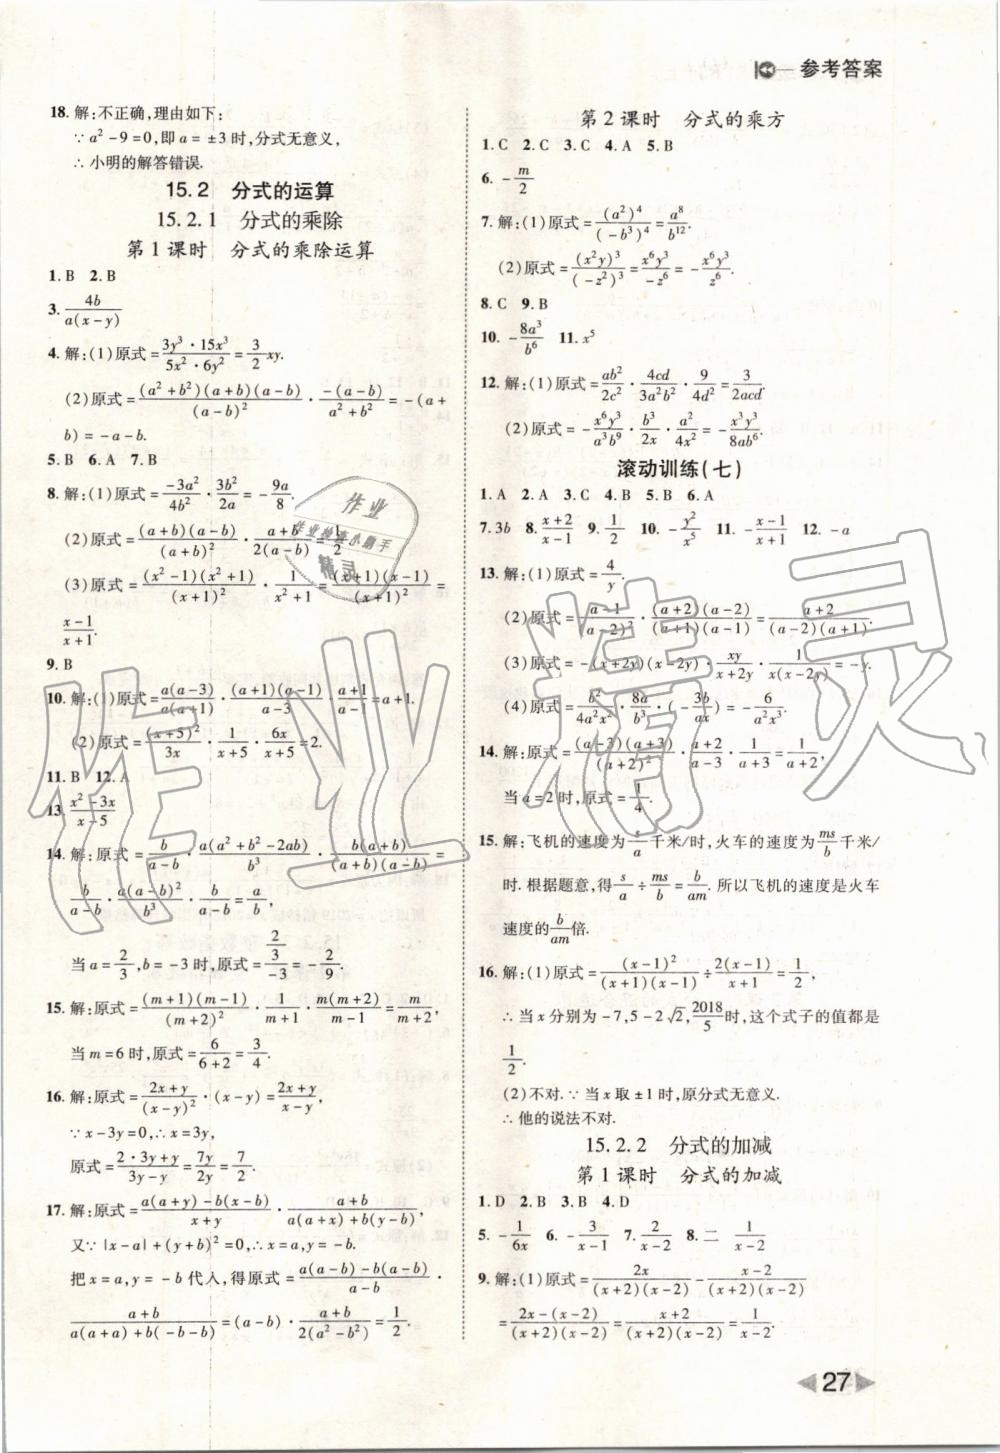 参考答案
18. 解:不正确,理由如下:
∵ a²-9=0,即 a=±3 时,分式无意义,
∴ 小明的解答错误.
15.2 分式的运算
15.2.1 分式的乘除
第1课时 分式的乘除运算
1. B 2. B
3. 4b/[a(x-y)]
4. 解:(1)原式=(3y³·15x³)/(5x²·6y²)=(3/2)xy.
(2)原式=[(a²+b²)(a+b)(a-b)]/(a-b)²·[-(a-b)]/(a²+b²)=-(a+
b)=-a-b.
5. B 6. A 7. B
8. 解:(1)原式=(-3a²)/(4b²)·(3b²)/(2a)=-9a/8.
(2)原式=[(a+b)(a-b)]/(a+b)²·(a+b)/[2(a-b)]=1/2.
(3)原式=[(x²-1)(x²+1)]/(x+1)²·1/(x²+1)=[(x+1)(x-1)]/(x+1)²=
(x-1)/(x+1).
9. B
10. 解:(1)原式=[a(a-3)]/[a(a+1)]·[(a+1)(a-1)]/(a-3)·(a+1)/(a-1)=a+1.
(2)原式=(x+5)²/(3x)·1/(x+5)·6x/(x+5)=2.
11. B 12. A
13. (x²-3x)/(x-5)
14. 解:原式=b/(a-b)·[a(a²+b²-2ab)]/b³·[b(a+b)]/[(a+b)(a-b)]=
b/(a-b)·[a(a-b)²]/b³·b/(a-b)=a/b,
当 a=2/3,b=-3 时,原式=(2/3)/(-3)=-2/9.
15. 解:原式=[(m+1)(m-1)]/(m+2)²·1/(m+1)·[m(m+2)]/(m-1)=m/(m+2),
当 m=6 时,原式=6/(6+2)=3/4.
16. 解:原式=(2x+y)/(x-y)²·(x-y)=(2x+y)/(x-y),
∵ x-3y=0,∴ x=3y,
原式=(2·3y+y)/(3y-y)=7y/2y=7/2.
17. 解:原式=[a(a+y)-b(x-b)]/(x+y)·(a+b)/[a(a+x)+b(y-b)],
又∵ |x-a|+(y+b)²=0,∴ x=a,y=-b.
把 x=a,y=-b 代入,得原式=[a(a-b)-b(a-b)]/(a-b)·
(a+b)/[a(a+a)+b(-b-b)]=(a-b)·(a+b)/[2(a²-b²)]=1/2.
第2课时 分式的乘方
1. C 2. C 3. C 4. A 5. B
6. -m/2
7. 解:(1)原式=(a²)⁴/(-b³)⁴=a⁸/b¹².
(2)原式=(x²y)³/(-z²)³=x⁶y³/(-z⁶)=-x⁶y³/z⁶.
8. C 9. B
10. -8a³/b⁶ 11. x⁵
12. 解:(1)原式=ab²/2c²·4cd/3a²b²·9/4d²=3/2acd.
(2)原式=-x⁶y³/a³b⁹·b³/2x·a²/4x²=-x³y³/8ab⁶.
滚动训练(七)
1. A 2. A 3. A 4. B 5. B 6. A
7. 3b 8. (x+2)/(x-1) 9. 1/2 10. -y²/x⁵ 11. -(x-1)/(x+1) 12. -a
13. 解:(1)原式=4/y.
(2)原式=(a-1)/(a-2)²·[(a+2)(a-2)]/[(a+1)(a-1)]=(a+2)/[(a-2)(a+1)].
(3)原式=-(x+2y)(x-2y)·xy/(x+2y)·1/[x(x-2y)]=-y.
(4)原式=b²/4a²x²·8a/b³·(-3b/ax)=-6/a²x³.
14. 解:原式=[(a-3)(a+3)]/(a+2)²·(a+2)/(a-3)·1/(a+3)=1/(a+2),
当 a=2 时,原式=1/4.
15. 解:飞机的速度为 s/a 千米/时,火车的速度为 ms/b 千米/
时. 根据题意,得 s/a÷ms/b=b/am. 所以飞机的速度是火车
速度的 b/am 倍.
16. 解:(1)原式=(x-1)²/[(x+1)(x-1)]÷[2(x-1)]/(x+1)=1/2,
∴ 当 x 分别为 -7,5-2√2,2018/5 时,这个式子的值都是
1/2.
(2)不对. ∵ 当 x 取 ±1 时,原分式无意义.
∴ 他的说法不对.
15.2.2 分式的加减
第1课时 分式的加减
1. D 2. B 3. B 4. D
5. -1/6x 6. -3/(x-1) 7. 2/(x-2) 8. 二 1/(x-2)
9. 解:(1)原式=2x/[(x+2)(x-2)]-(x-2)/[(x+2)(x-2)]
=[2x-(x-2)]/[(x+2)(x-2)]=(x+2)/[(x+2)(x-2)]=1/(x-2).
27
作业
作业检查小助手
精灵
作业精灵